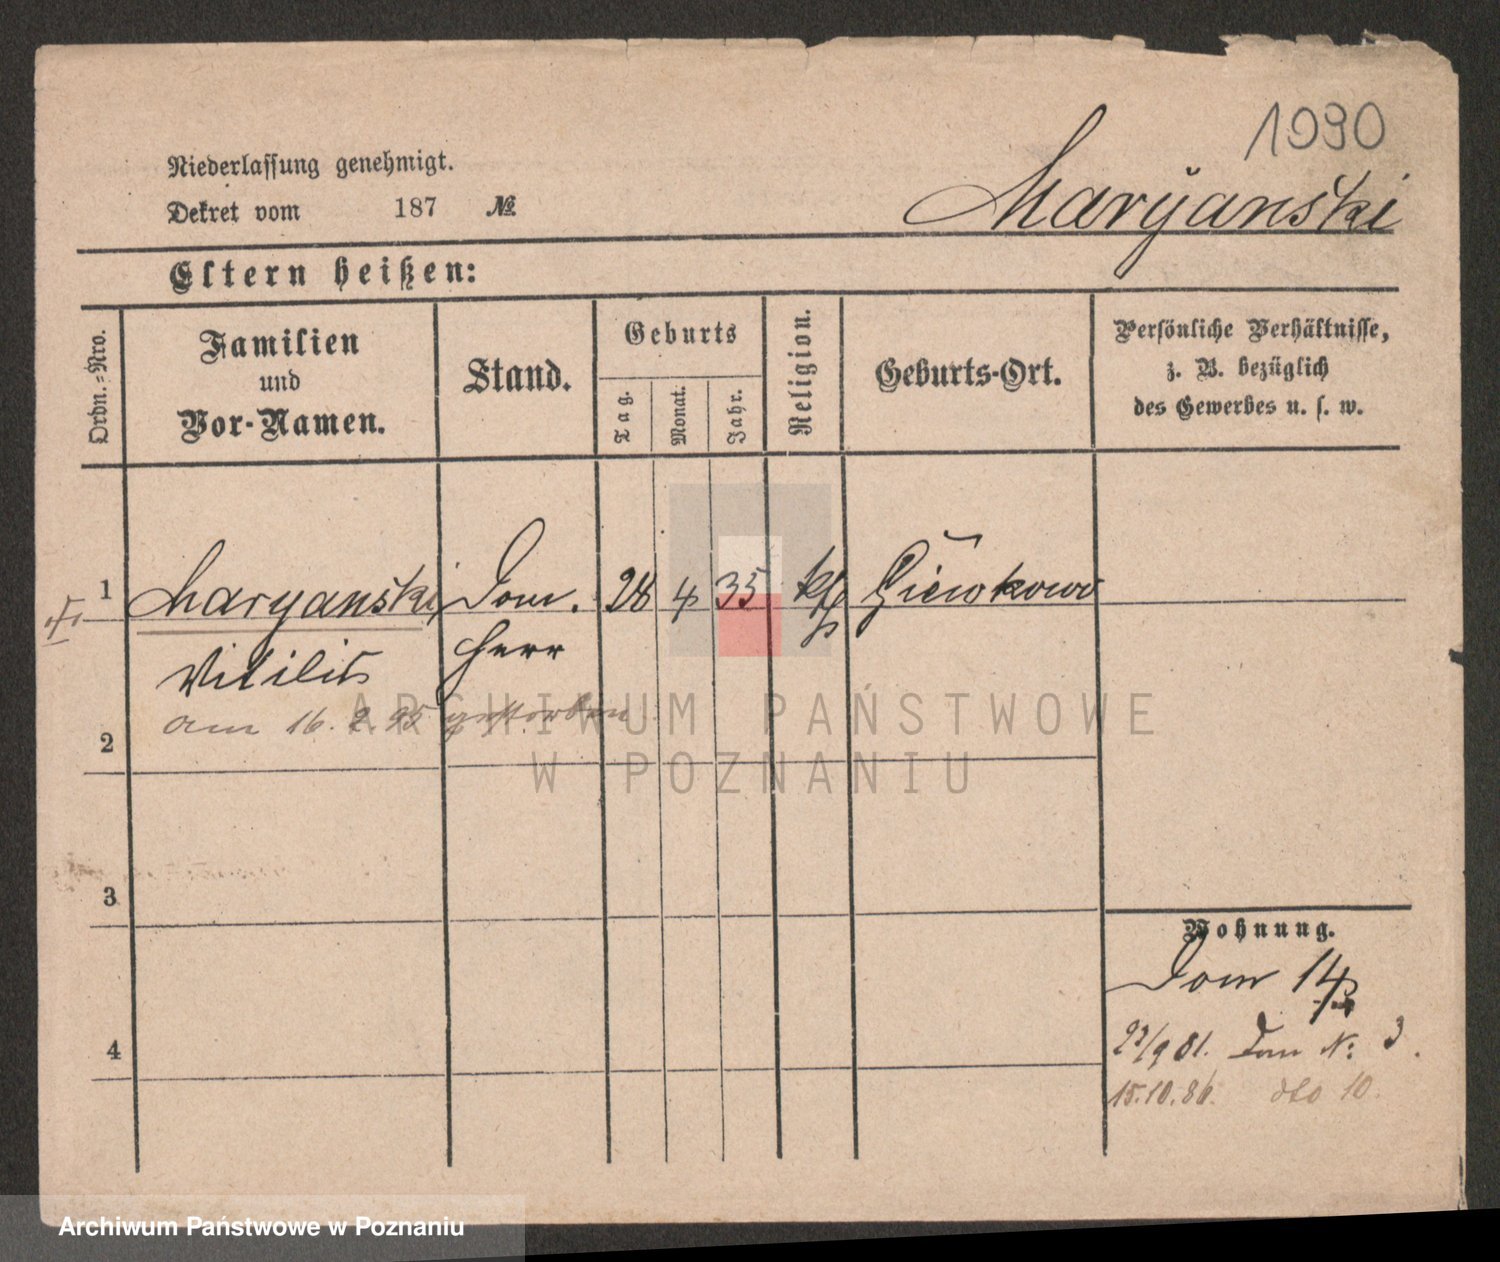 1090
Niederlassung genehmigt.
Dekret vom 187 №
Maryański
Eltern heißen:
Ordn.-Nro.
Familien
und
Vor-Namen.
Stand.
Geburts
Tag.
Monat.
Jahr.
Religion.
Geburts-Ort.
Persönliche Verhältnisse,
z. B. bezüglich
des Gewerbes u. s. w.
1 Maryański Dom. 28 4 35 kth
Herr
am 16. 2. 95 gestorben
2
3
4
Wohnung.
Dom 14
9 81. Dom №: 3.
15.10.86. dto 10.
ARCHIWUM PAŃSTWOWE
W POZNANIU
Archiwum Państwowe w Poznaniu